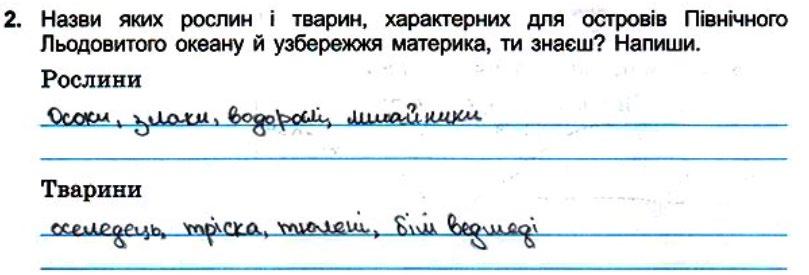 2. Назви яких рослин і тварин, характерних для островів Північного
Льодовитого океану й узбережжя материка, ти знаєш? Напиши.
Рослини
Осоки, злаки, водорослі, лишайники
Тварини
оселедець, тріска, тюлені, білі ведмеді